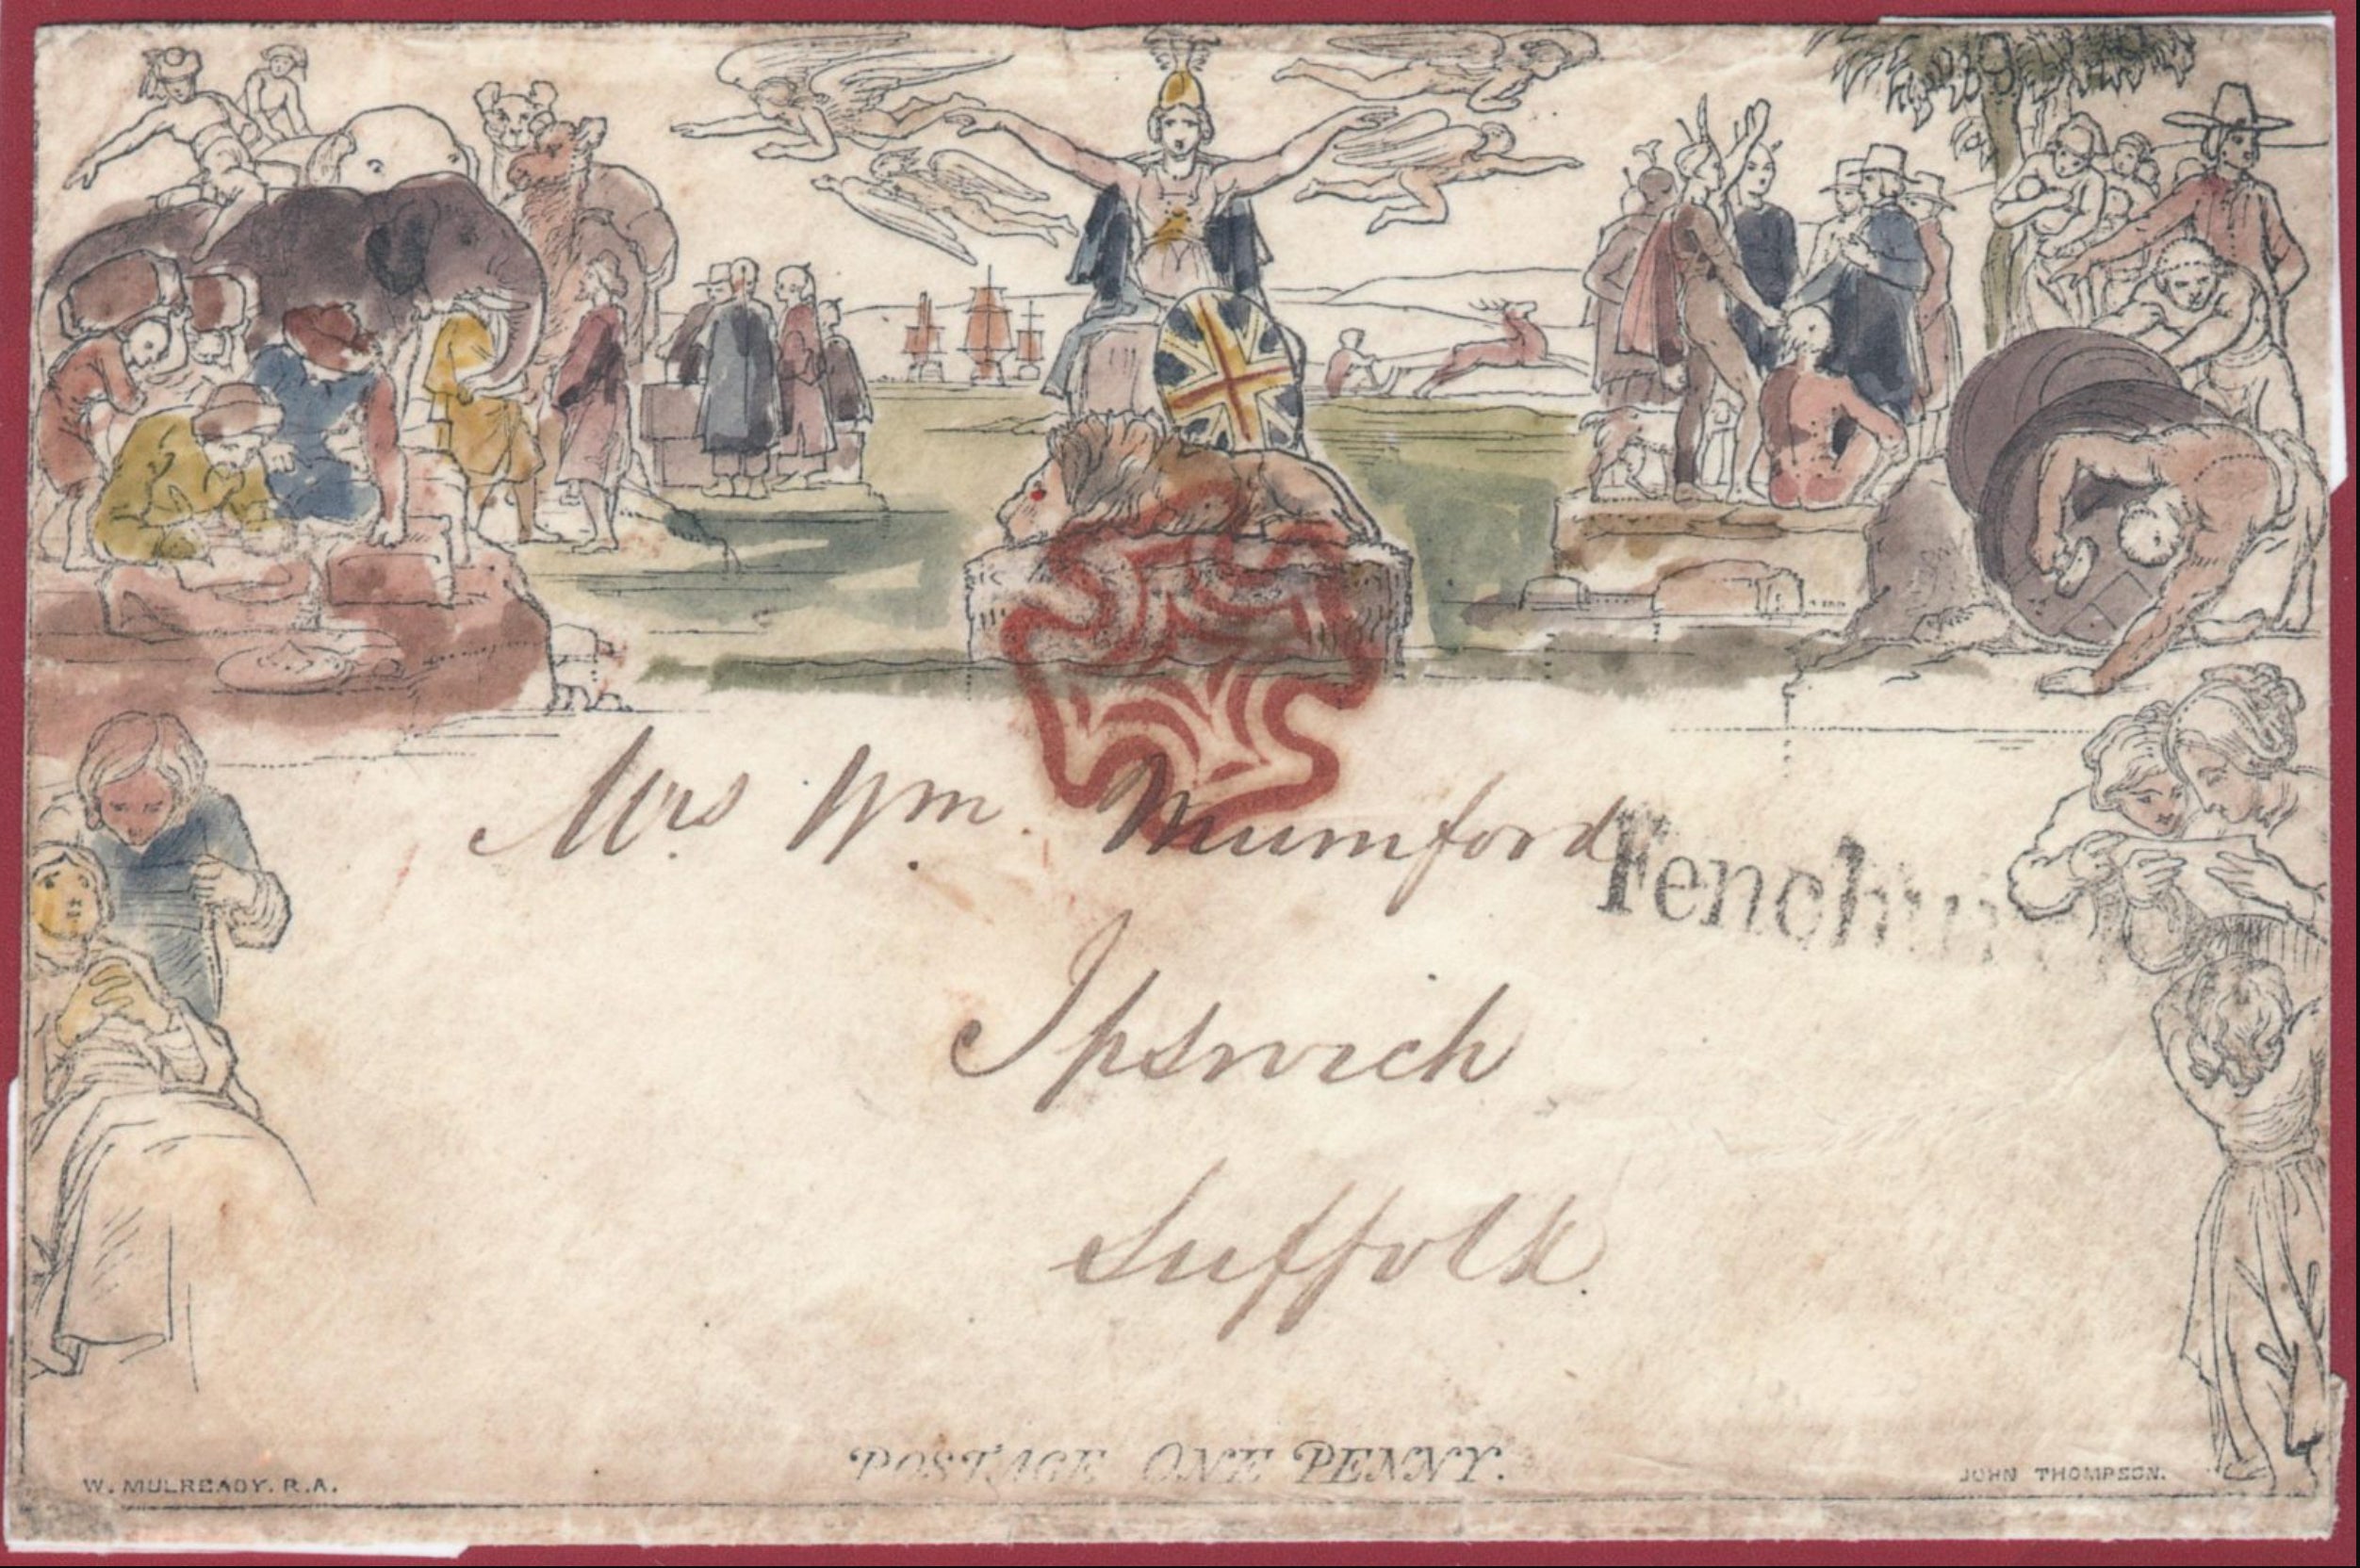 Mrs. Wm. Mumford
Ipswich
Suffolk.
POSTAGE ONE PENNY.
W. MULREADY. R.A.
JOHN THOMPSON.